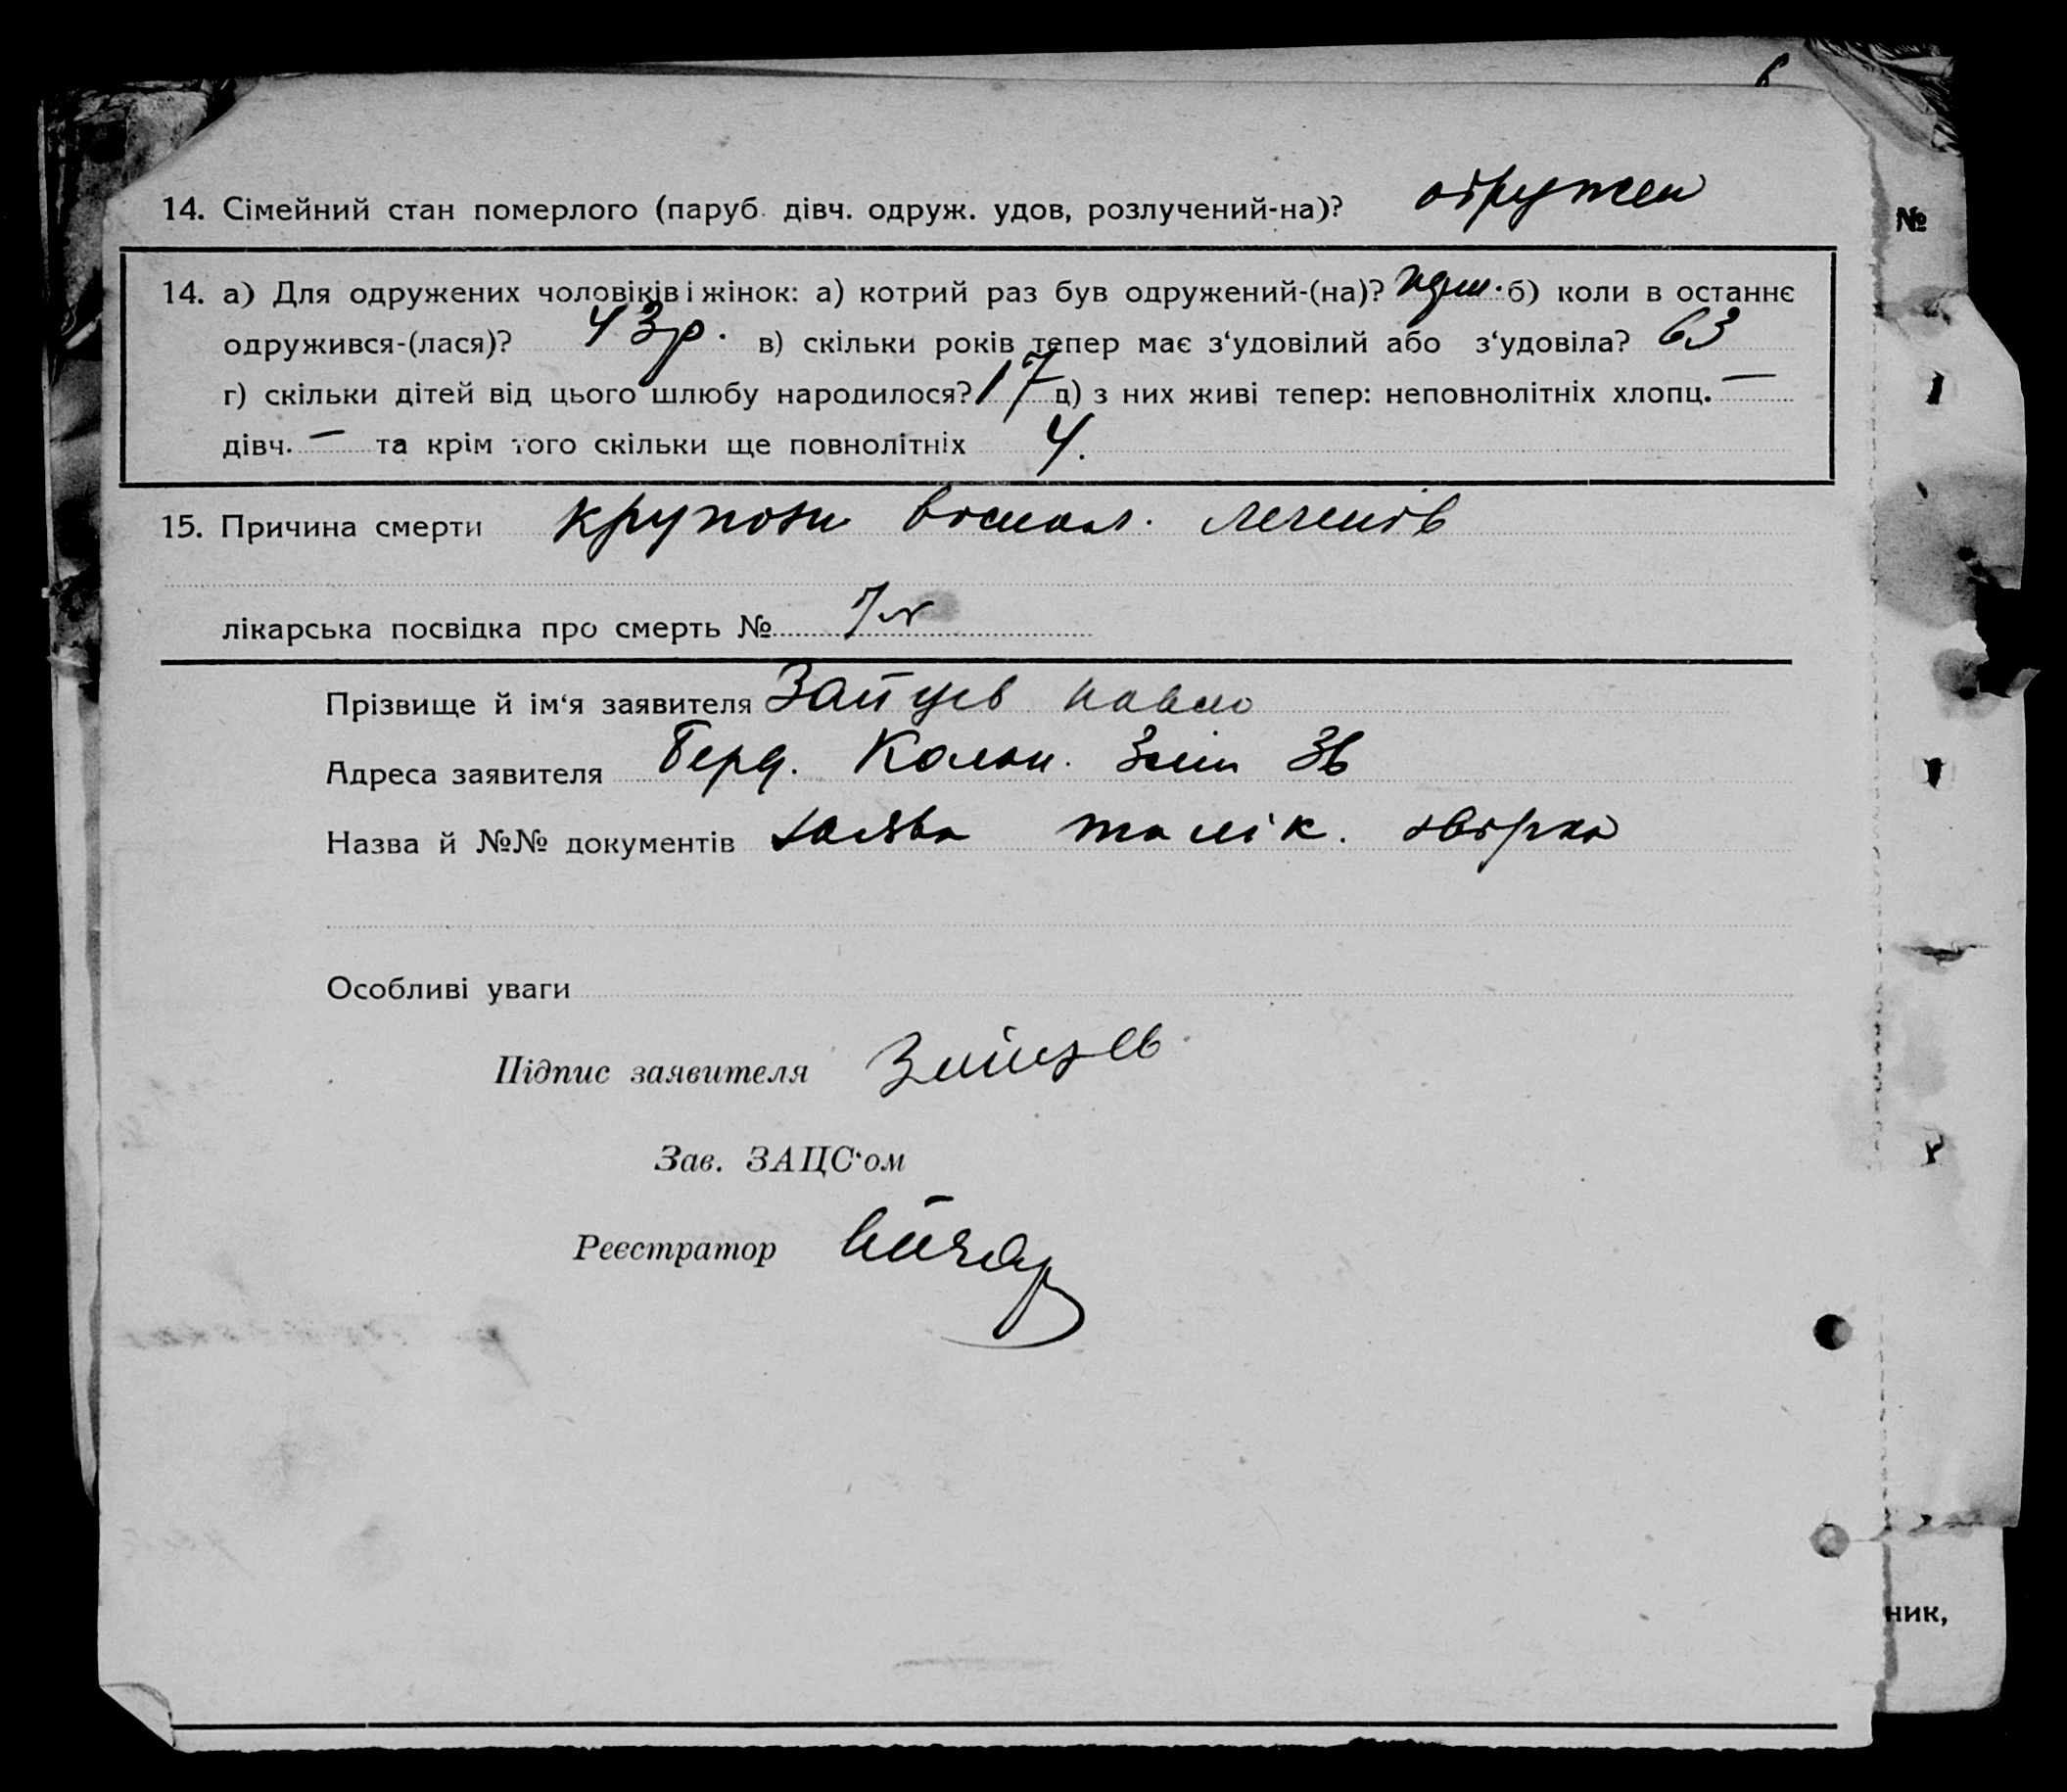 14. Сімейний стан померлого (паруб. дівч. одруж. удов, розлучений-на)? одружен
№
14. а) Для одружених чоловіків і жінок: а) котрий раз був одружений-(на)? б) коли в останнє
одружився-(лася)? 43 р. в) скільки років тепер має з‘удовілий або з‘удовіла? 63
г) скільки дітей від цього шлюбу народилося? 17 д) з них живі тепер: неповнолітніх хлопц. —
дівч. — та крім того скільки ще повнолітніх 4.
15. Причина смерти крупозн воспал. легенів
лікарська посвідка про смерть №
Прізвище й ім‘я заявителя Зайцев Павло
Адреса заявителя Берд. Колон. 36
Назва й №№ документів заява та лік. довідка
Особливі уваги
Підпис заявителя Зайцев
Зав. ЗАЦС‘ом
Реєстратор
ник,